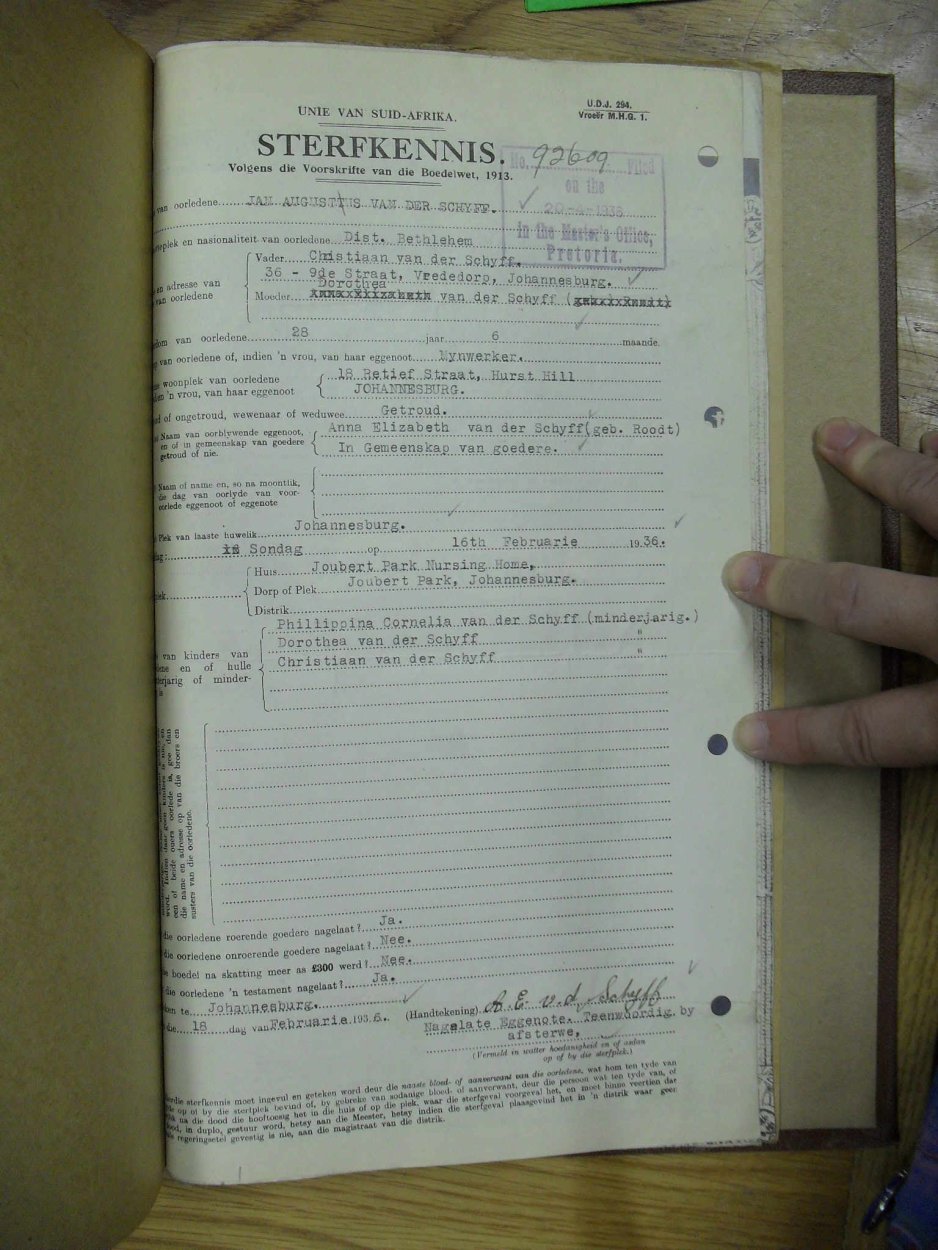 U.D.J. 294.
Vroeër M.H.G. 1.
UNIE VAN SUID-AFRIKA.
STERFKENNIS.
Volgens die Voorskrifte van die Boedelwet, 1913.
No. 92609 Filed
on the
20-4-1936
In the Master's Office,
Pretoria.
van oorledene JAN AUGUSTTUS VAN DER SCHYFF.
en nasionaliteit van oorledene Dist. Bethlehem
Vader Christiaan van der Schyff.
en adresse van
van oorledene
36 - 9de Straat, Vrededorp, Johannesburg.
Dorothea
Moeder van der Schyff
van oorledene 28 jaar 6 maande.
van oorledene of, indien 'n vrou, van haar eggenoot Mynwerker.
woonplek van oorledene
'n vrou, van haar eggenoot
18 Retief Straat, Hurst Hill
JOHANNESBURG.
of ongetroud, wewenaar of weduwee Getroud.
Naam van oorblywende eggenoot,
en of in gemeenskap van goedere
getroud of nie.
Anna Elizabeth van der Schyff (geb. Roodt)
In Gemeenskap van goedere.
Naam of name en, so na moontlik,
die dag van oorlyde van voor-
oorlede eggenoot of eggenote
Plek van laaste huwelik Johannesburg.
Sondag op 16th Februarie 1936.
Huis Joubert Park Nursing Home,
Dorp of Plek Joubert Park, Johannesburg.
Distrik
van kinders van
en of hulle
of minder-
Phillippina Cornelia van der Schyff (minderjarig.)
Dorothea van der Schyff "
Christiaan van der Schyff "
een of beide ouers oorlede is, goe dan
die name en adresse op van die broers en
susters van die oorledene.
die oorledene roerende goedere nagelaat? Ja.
die oorledene onroerende goedere nagelaat? Nee.
boedel na skatting meer as £300 werd? Nee.
die oorledene 'n testament nagelaat? Ja.
te Johannesburg.
die 18 dag van Februarie 1936.
(Handtekening) A. E. v. d. Schyff
Nagelate Eggenote. Teenwoordig by
afsterwe,
(Vermeld in watter hoedanigheid en of aldan
op of by die sterfplek.)
sterfkennis moet ingevul en geteken word deur die naaste bloed- of aanverwant van die oorledene, wat hom ten tyde van
op of by die sterfplek bevind of, by gebreke van sodanige bloed- of aanverwant, deur die persoon wat ten tyde van, of
na die dood die hooftoesig het in die huis of op die plek, waar die sterfgeval voorgeval het, en moet binne veertien dae
in duplo, gestuur word, hetsy aan die Meester, hetsy indien die sterfgeval plaasgevind het in 'n distrik waar geen
regeringsetel gevestig is nie, aan die magistraat van die distrik.